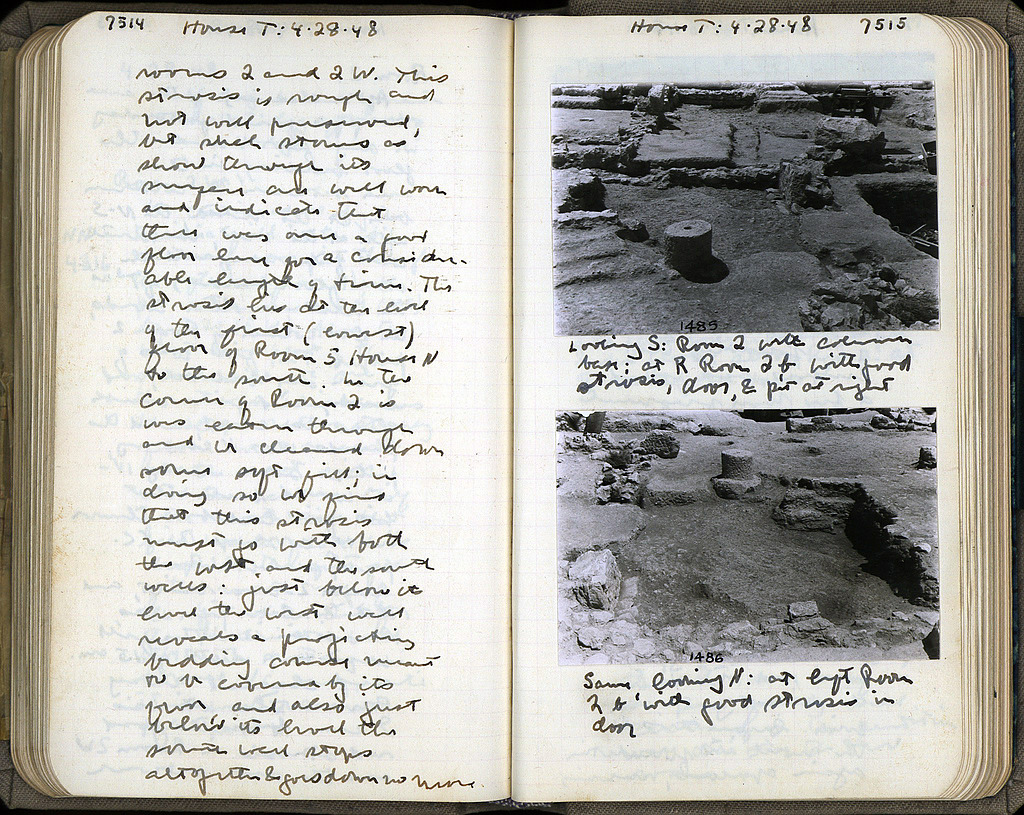 7514
House T: 4·28·48
rooms 2 and 2 W. This
strosis is rough and
not well preserved,
but such stones as
show through its
surface are well worn
and indicate that
this was once a good
floor line for a consider-
able length of time. This
strosis lies at the level
of the first (lowest)
floor of Room 5 House N
to the south. In the
corner of Room 2 is
was eaten through
and we cleaned down
some soft fill; in
doing so we find
that this strosis
must go with both
the west and the south
walls: just below its
level the west wall
reveals a projecting
bedding course meant
to be covered by its
floor and also just
below its level the
south wall stops
altogether & goes down no more.
House T: 4·28·48
7515
1485
Looking S: Room 2 with column
base; at R Room 2 b with good
strosis, door, & pit at right
1486
Same looking N: at left Room
2 b with good strosis in
door